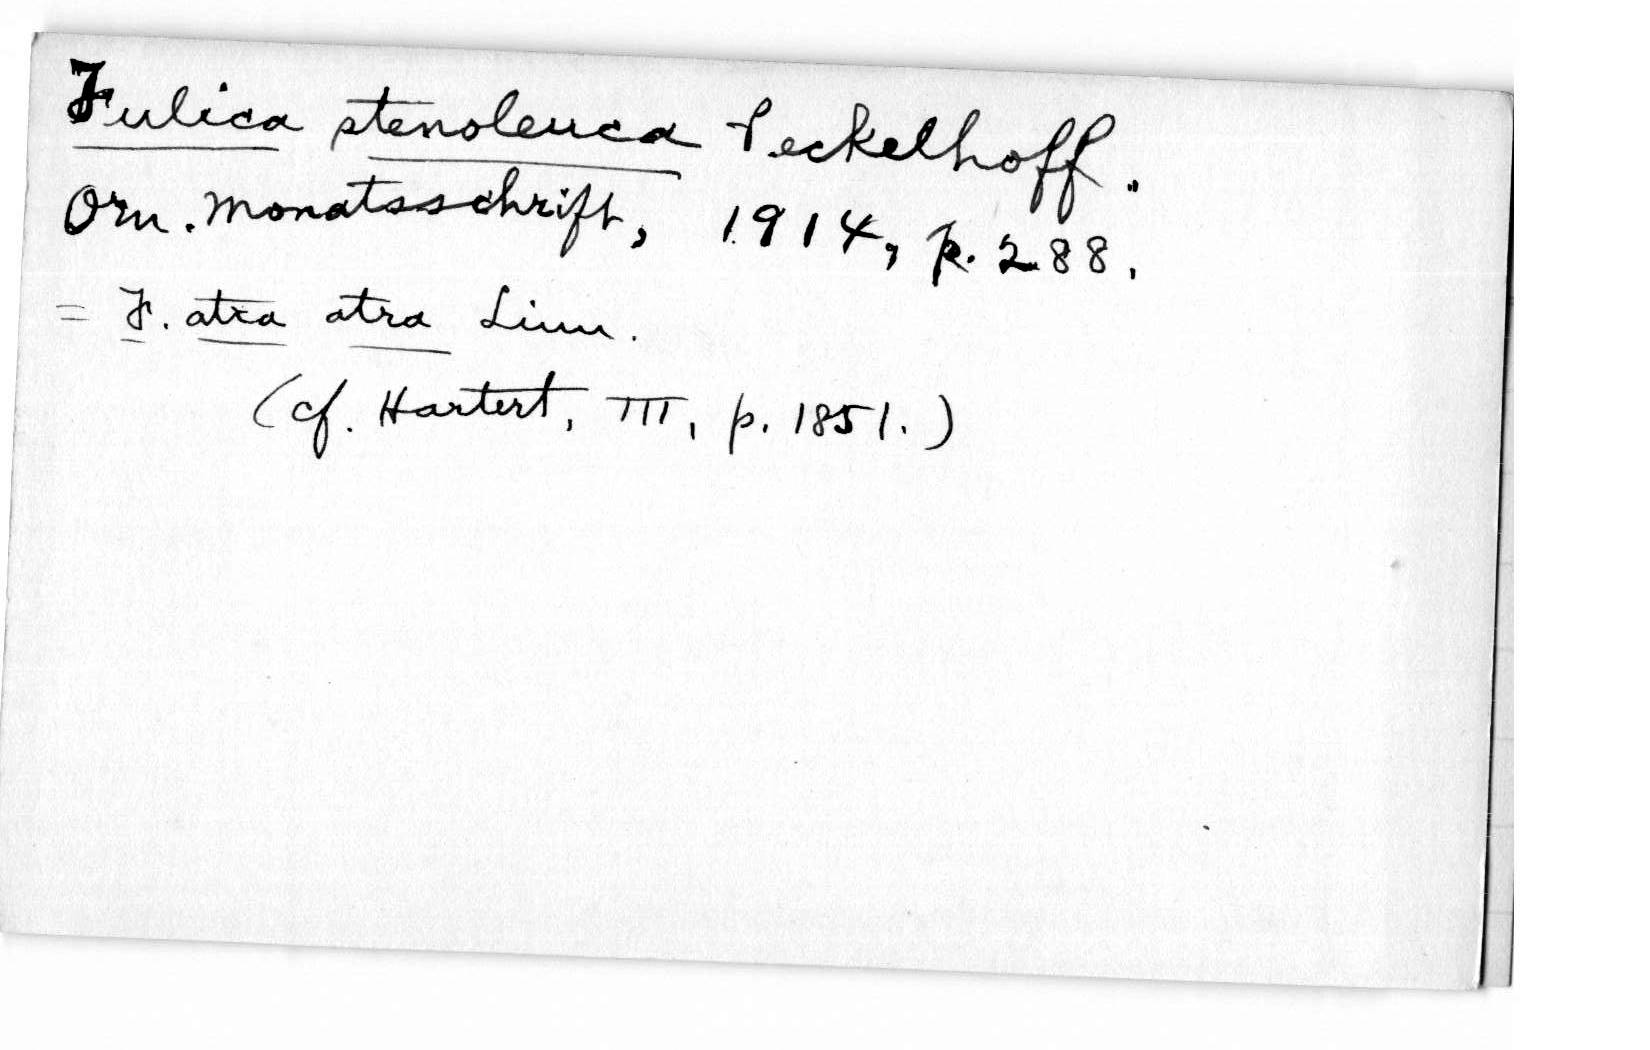 Fulica stenoleuca Peckelhoff.
Orn. Monatsschrift, 1914, p. 288.
= F. atra atra Linn.
(cf. Hartert, III, p. 1851.)